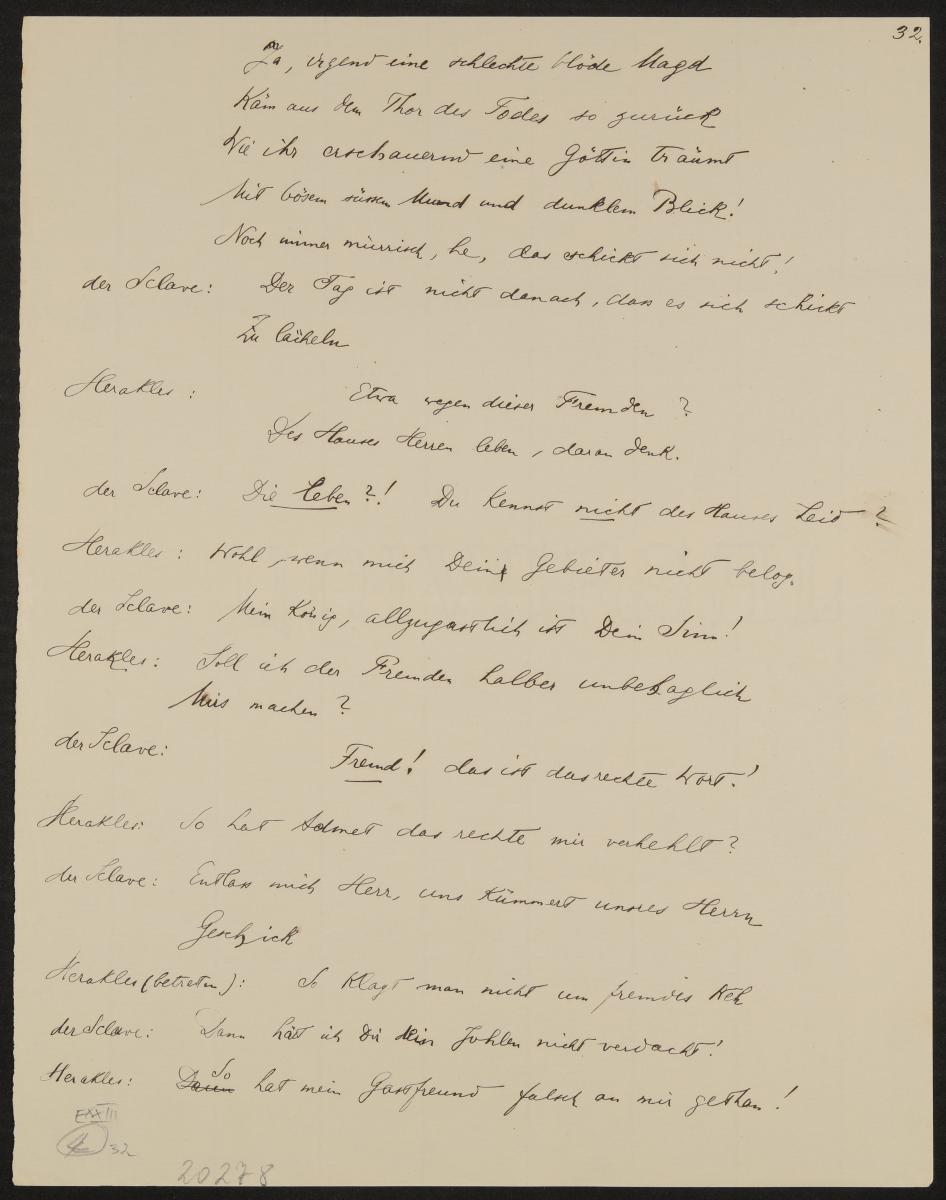 32.
Ja, irgend eine schlechte blöde Magd
Käm aus dem Thor des Todes so zurück
Wie ihr erschauernd eine Göttin träumt
Mit bösem süssen Mund und dunklem Blick!
Noch immer mürrisch, he, das schickt sich nicht!
der Sclave: Der Tag ist nicht danach, dass es sich schickt
Zu lächeln
Herakles: Etwa wegen dieser Fremden?
Des Hauses Herren leben, daran denk.
der Sclave: Die leben?! Du kennst nicht des Hauses Leid?
Herakles: Wohl, wenn mich Dein Gebieter nicht belog.
der Sclave: Mein König, allzugastlich ist Dein Sinn!
Herakles: Soll ich der Fremden halber unbehaglich
Mirs machen?
der Sclave: Fremd! das ist das rechte Wort!
Herakles: So hat Admet das rechte mir verhehlt?
der Sclave: Entlass mich Herr, uns kümmert unsres Herrn
Geschick
Herakles (betreten): So klagt man nicht um fremdes Weh
der Sclave: Dann hätt ich Dir Dein Johlen nicht verdacht!
Herakles: Dann So hat mein Gastfreund falsch an mir gethan!
III
32
20278